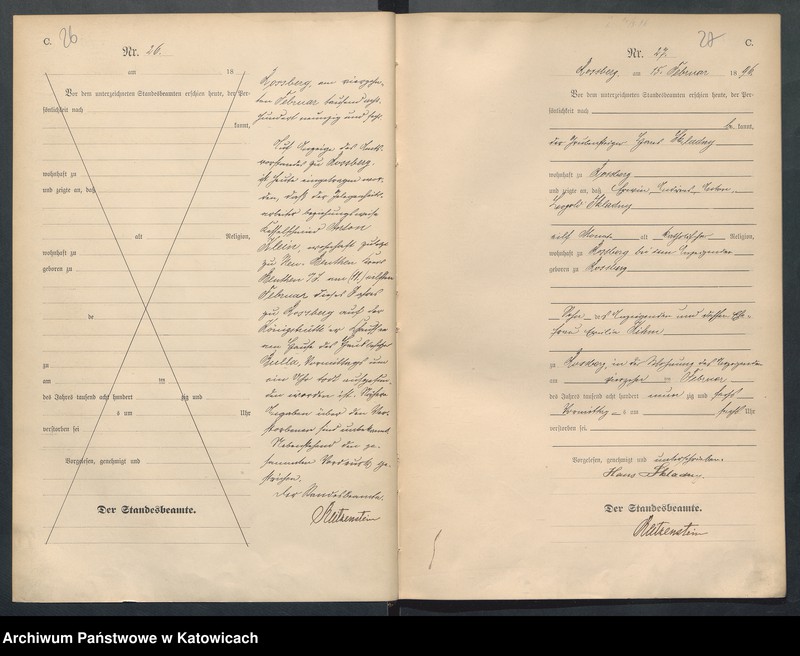 C. 26
Nr. 26.
am 18
Vor dem unterzeichneten Standesbeamten erschien heute, der Per-
sönlichkeit nach
kannt,
wohnhaft zu
und zeigte an, daß
alt Religion,
wohnhaft zu
geboren zu
de
zu
am ten
des Jahres tausend acht hundert zig und
s um Uhr
verstorben sei
Vorgelesen, genehmigt und
Der Standesbeamte.
Rossberg, am vierzehn-
ten Februar tausend acht-
hundert neunzig und sechs.
Auf Anzeige des Amts-
vorstandes zu Rossberg
ist heute eingetragen wor-
den, daß der Gelegenheits-
arbeiter beziehungsweise
Kesselschmied Anton
Klein, wohnhaft zuletzt
zu Neu-Beuthen
Beuthen am (11.) elften
Februar dieses Jahres
zu Rossberg auf der
Königshütte'er Chaussee
am Hause des
Vormittags um
ein Uhr todt aufgefun-
den worden ist. Nähere
Angaben über den Ver-
storbenen sind unbekannt.
Nebenstehend
Vordruck ge-
strichen.
Der Standesbeamte.
27 C.
Nr. 27.
Rossberg, am 15. Februar 1896.
Vor dem unterzeichneten Standesbeamten erschien heute, der Per-
sönlichkeit nach
be kannt,
der Grubensteiger Hans Skladny
wohnhaft zu Rossberg
und zeigte an, daß Erwin
Leopold Skladny
elf Monate alt katholischer Religion,
wohnhaft zu Rossberg bei dem Anzeigenden
geboren zu Rossberg
Sohn des Anzeigenden und dessen Ehe-
frau Emilie
zu Rossberg, in der Wohnung des Anzeigenden
am vierzehn ten Februar
des Jahres tausend acht hundert neun zig und sechs
Vormittags um Uhr
verstorben sei.
Vorgelesen, genehmigt und unterschrieben.
Hans Skladny.
Der Standesbeamte.
Archiwum Państwowe w Katowicach